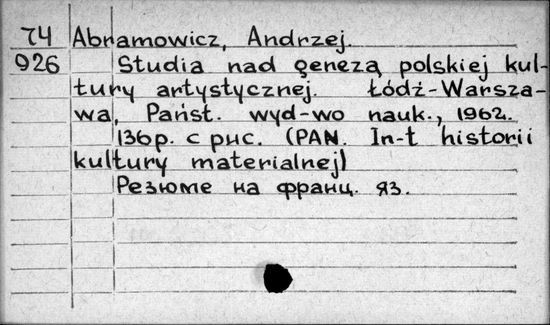 74 Abramowicz, Andrzej.
926 Studia nad genezą polskiej kul-
tury artystycznej. Łódź-Warsza-
wa, Państ. wyd-wo nauk., 1962.
136p. с рис. (PAN. In-t historii
kultury materialnej)
Резюме на франц. яз.